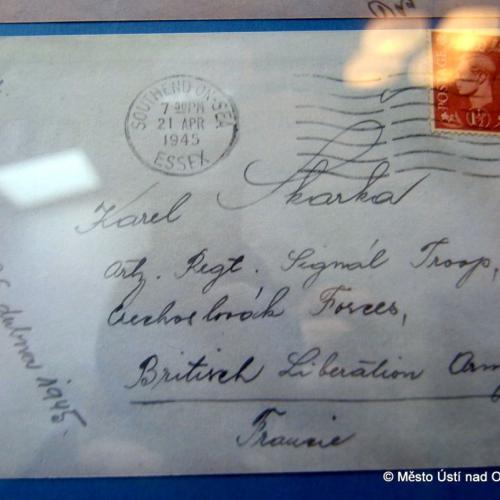 SOUTHEND-ON-SEA
7 30 PM
21 APR
1945
ESSEX
POSTAGE
1½
Karel Skarka
Artz. Regt. Signál Troop,
Čechoslovák Forces,
Britisch Liberátion Arm
Francie
dubna 1945.
© Město Ústí nad O